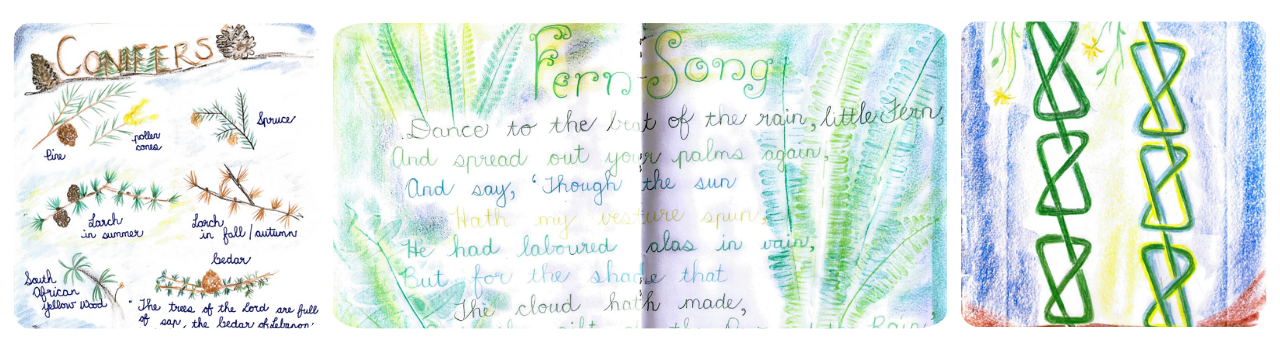 CONIFERS
Pine
pollen
cones
Spruce
Larch
in summer
Larch
in fall / autumn
South
African
Yellow Wood
Cedar
"The trees of the Lord are full
of sap, the Cedar of Lebanon
Fern Song
Dance to the beat of the rain, little Fern,
And spread out your palms again,
And say, 'Though the sun
Hath my vesture spun,
He had laboured alas in vain,
But for the shade that
The cloud hath made,
gift of the Rain,